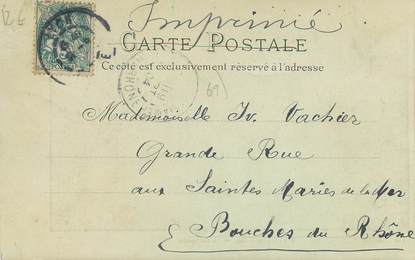 Imprimé
CARTE POSTALE
Ce côté est exclusivement réservé à l'adresse
69
Mademoiselle Iv. Vachier
Grande Rue
aux Saintes Maries de la Mer
Bouches du Rhône